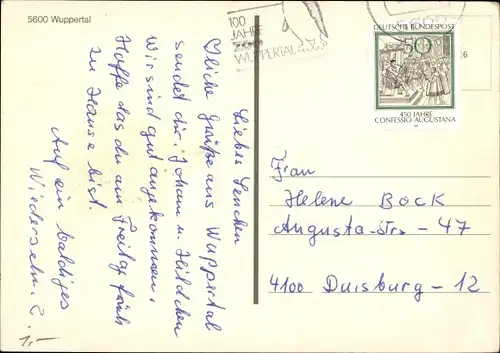 5600 Wuppertal
100
JAHRE
WUPPERTAL
DEUTSCHE BUNDESPOST
50
450 JAHRE
CONFESSIO AUGUSTANA
Liebes Lenchen
♡liche Grüße aus Wuppertal
sendet dir. Johann u. Hildchen
Wir sind gut angekommen.
Hoffe das du am Freitag früh
zu Hause bist.
Auf ein baldiges
Wiedersehn.
1,-
Frau
Helene BOCK
Augusta-Str - 47
4100 Duisburg - 12